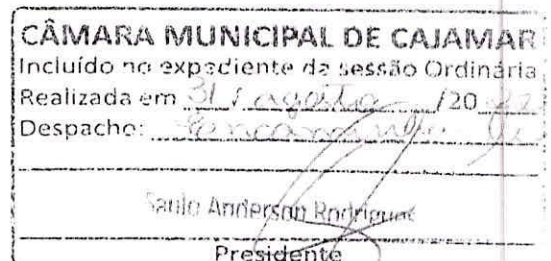 CÂMARA MUNICIPAL DE CAJAMAR
Incluído no expediente da sessão Ordinária
Realizada em 31 / agosto /20 22
Despacho: Encaminhe-se
Saulo Anderson Rodrigues
Presidente